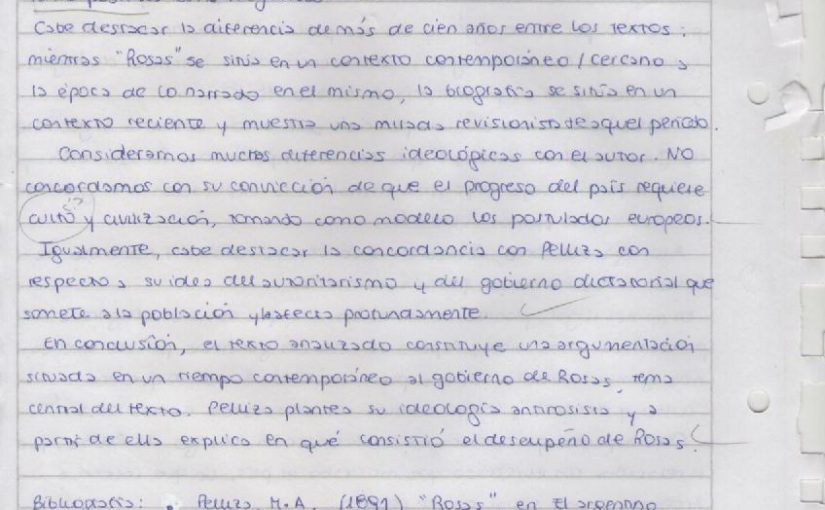 Cabe destacar la diferencia de más de cien años entre los textos:
mientras "Rosas" se sitúa en un contexto contemporáneo / cercano a
la época de lo narrado en el mismo, la biografía se sitúa en un
contexto reciente y muestra una mirada revisionista de aquel período.
Consideramos muchas diferencias ideológicas con el autor. No
concordamos con su convicción de que el progreso del país requiere
culto y civilización, tomando como modelo los postulados europeos.
Igualmente, cabe destacar la concordancia con Pelliza con
respecto a su idea del autoritarismo y del gobierno dictatorial que
somete a la población y la afecta profundamente.
En conclusión, el texto analizado constituye una argumentación
situada en un tiempo contemporáneo al gobierno de Rosas, tema
central del texto. Pelliza plantea su ideología antirosista y a
partir de ella explica en qué consistió el desempeño de Rosas.
Bibliografía: • Pelliza, M.A. (1891) "Rosas" en El argentino